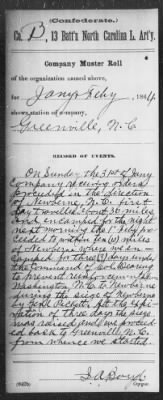 (Confederate.)
Co. B, 13 Batt'n North Carolina L. Art'y.
Company Muster Roll
of the organization named above,
for Jany & Feby, 1864.
shows station of company,
Greenville, N.C.
RECORD OF EVENTS.
On Sunday the 31st of Jany
Company recvd orders
proceed in the direction
of Newberne N.C. first
day travelled about 30 miles
and encamped for the night
next morning the 1st Feby pro-
ceeded to within six (6) miles
of Newberne where we en-
camped for three (3) days under
the command of Col Dearing
to prevent reinf from
Washington N.C. to Newberne
during the siege of Newberne
by Genl Pickett. At the expi-
ration of three days the siege
was raised and we procee-
ded back to Greenville N.C.
from whence we started.
Copyist.